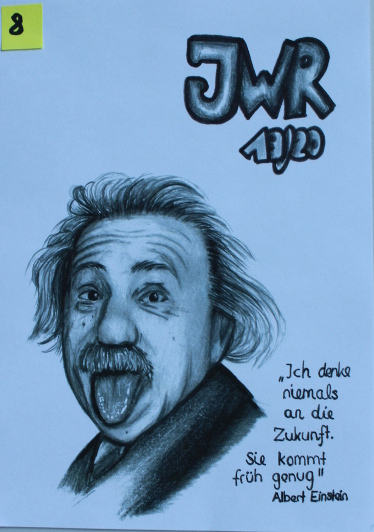 8
JWR
19/20
„Ich denke
niemals
an die
Zukunft.
Sie kommt
früh genug"
Albert Einstein